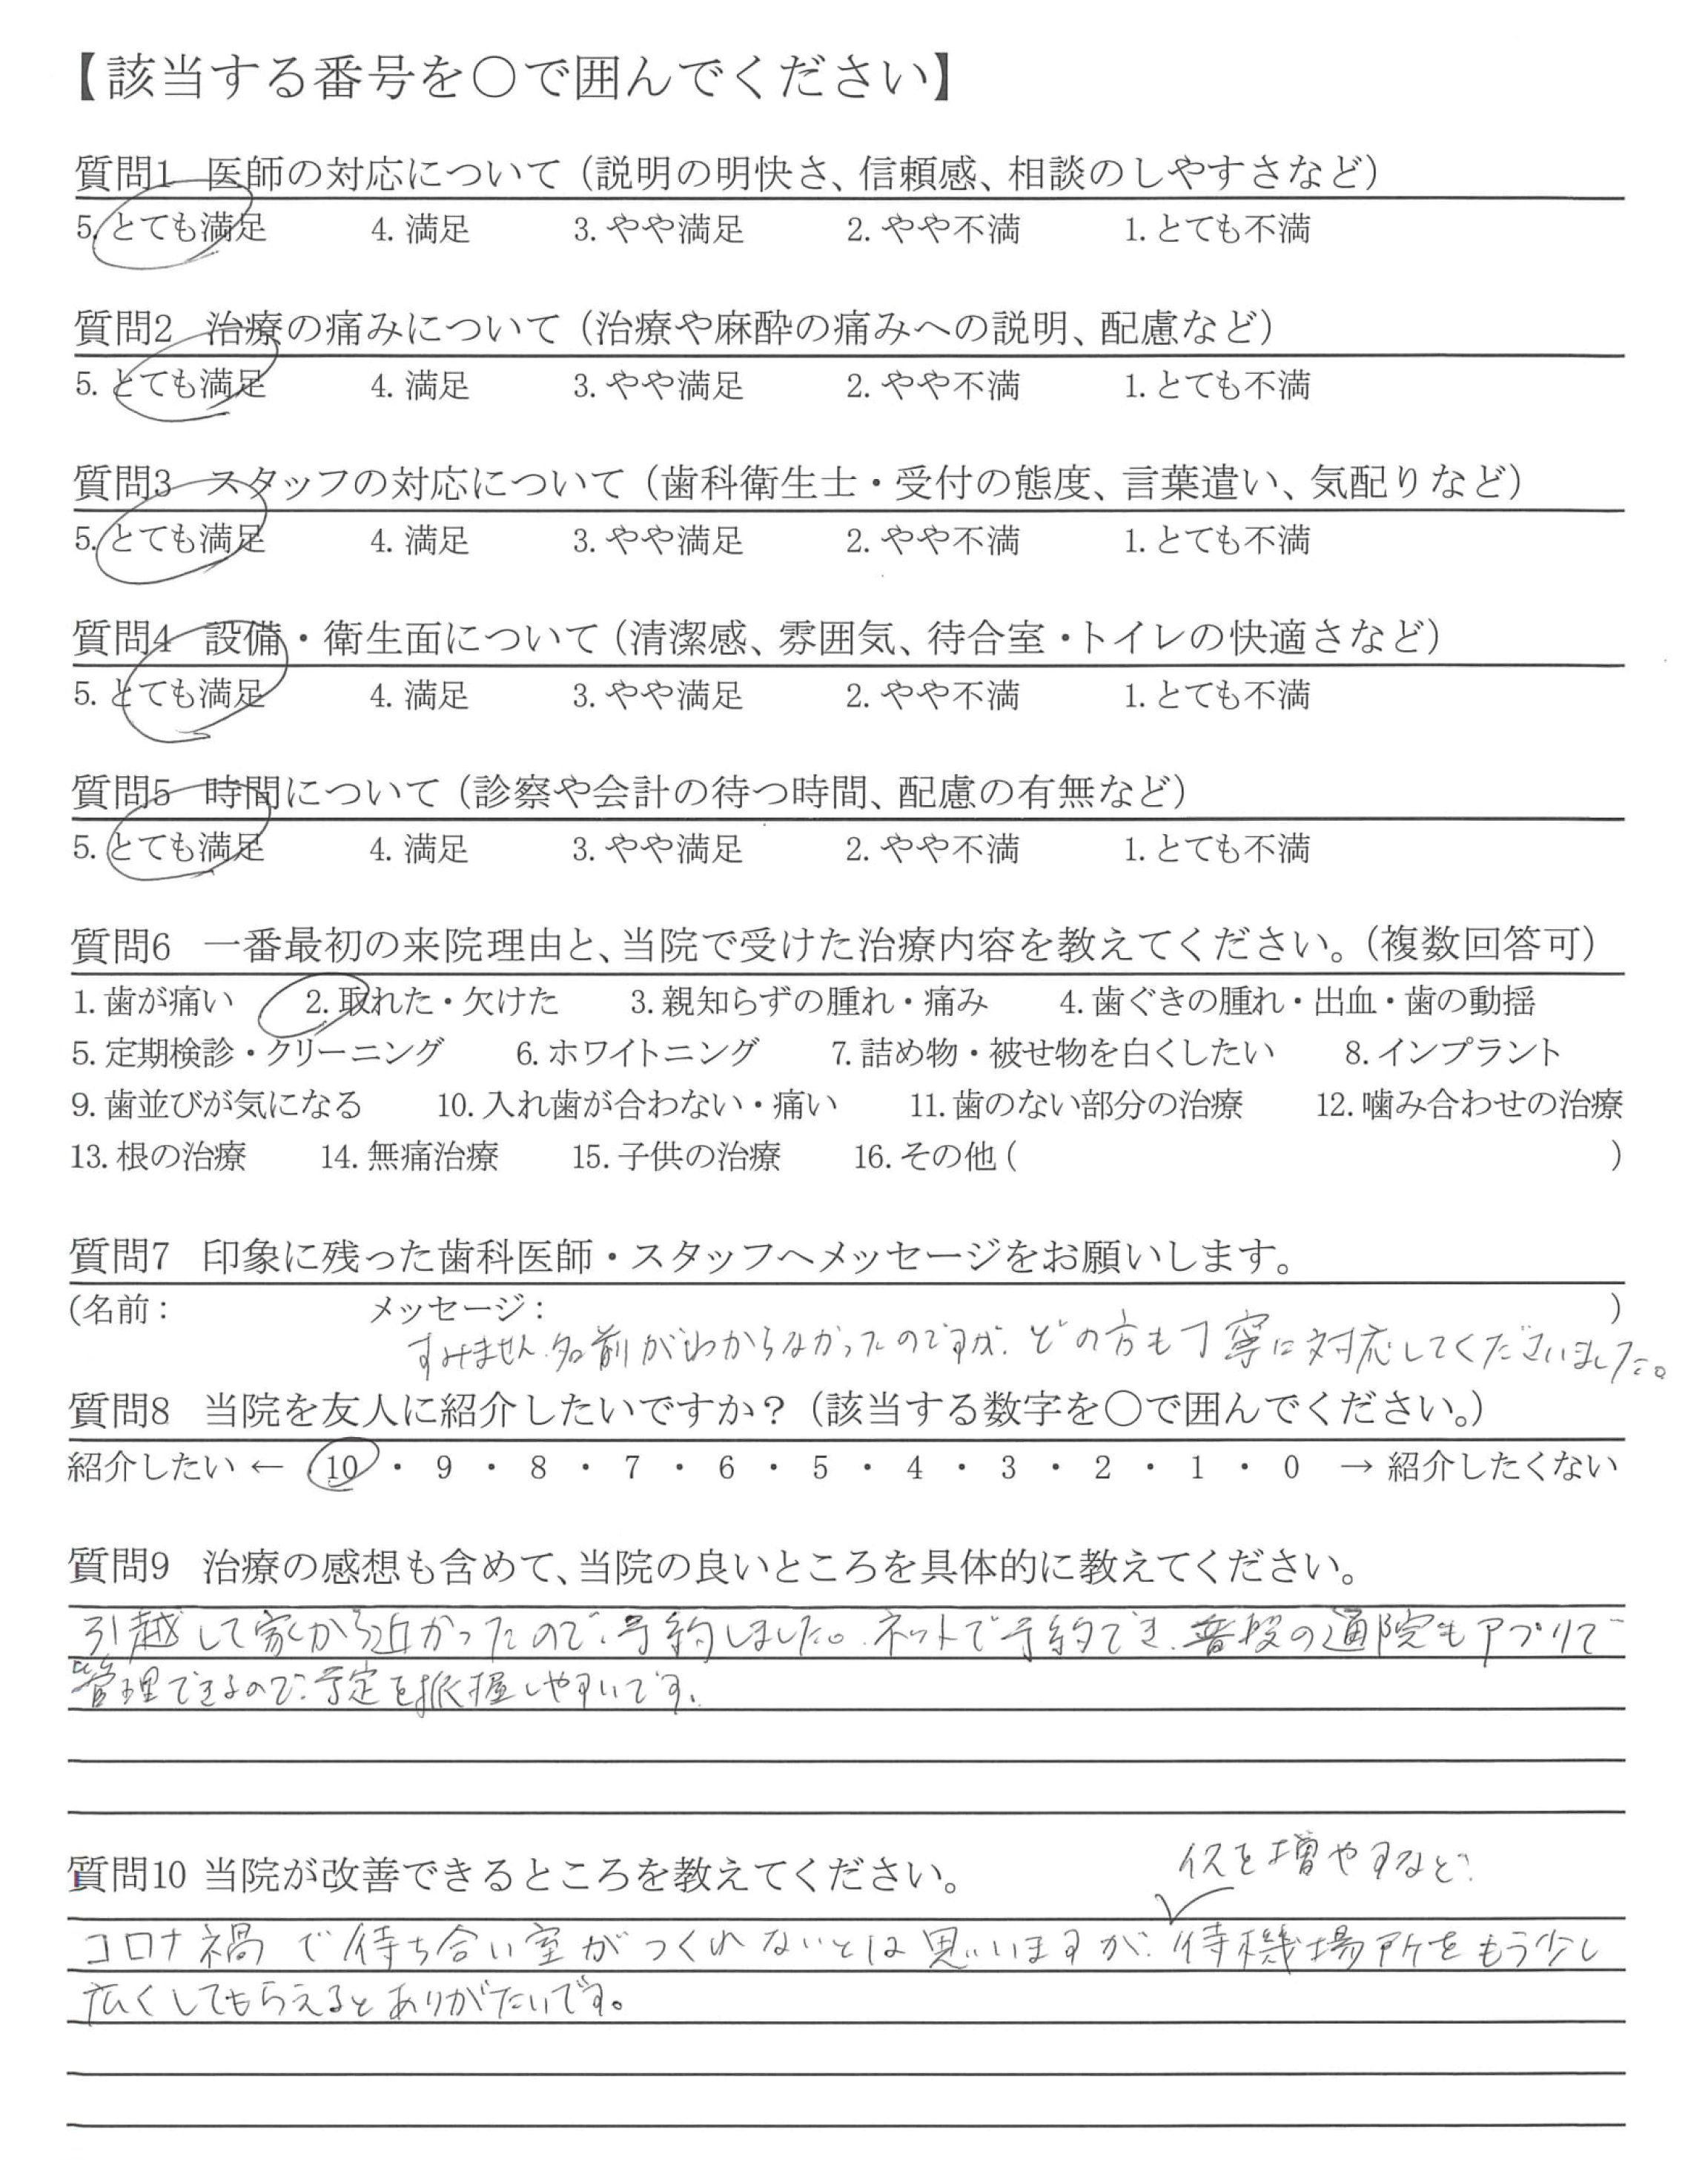 【該当する番号を〇で囲んでください】
質問1 医師の対応について（説明の明快さ、信頼感、相談のしやすさなど）
5. とても満足 4. 満足 3. やや満足 2. やや不満 1. とても不満
質問2 治療の痛みについて（治療や麻酔の痛みへの説明、配慮など）
5. とても満足 4. 満足 3. やや満足 2. やや不満 1. とても不満
質問3 スタッフの対応について（歯科衛生士・受付の態度、言葉遣い、気配りなど）
5. とても満足 4. 満足 3. やや満足 2. やや不満 1. とても不満
質問4 設備・衛生面について（清潔感、雰囲気、待合室・トイレの快適さなど）
5. とても満足 4. 満足 3. やや満足 2. やや不満 1. とても不満
質問5 時間について（診察や会計の待つ時間、配慮の有無など）
5. とても満足 4. 満足 3. やや満足 2. やや不満 1. とても不満
質問6 一番最初の来院理由と、当院で受けた治療内容を教えてください。（複数回答可）
1. 歯が痛い 2. 取れた・欠けた 3. 親知らずの腫れ・痛み 4. 歯ぐきの腫れ・出血・歯の動揺
5. 定期検診・クリーニング 6. ホワイトニング 7. 詰め物・被せ物を白くしたい 8. インプラント
9. 歯並びが気になる 10. 入れ歯が合わない・痛い 11. 歯のない部分の治療 12. 噛み合わせの治療
13. 根の治療 14. 無痛治療 15. 子供の治療 16. その他（ ）
質問7 印象に残った歯科医師・スタッフへメッセージをお願いします。
（名前： メッセージ： ）
すみません。名前がわからなかったのですが、どの方も丁寧に対応してくださいました。
質問8 当院を友人に紹介したいですか？（該当する数字を〇で囲んでください。）
紹介したい ← 10 ・ 9 ・ 8 ・ 7 ・ 6 ・ 5 ・ 4 ・ 3 ・ 2 ・ 1 ・ 0 → 紹介したくない
質問9 治療の感想も含めて、当院の良いところを具体的に教えてください。
引越して家から近かったので、予約しました。ネットで予約でき、普段の通院もアプリで
管理できるので、予定を把握しやすいです。
質問10 当院が改善できるところを教えてください。
イスを増やすなど
コロナ禍で待ち合い室がつくれないとは思いますが、待機場所をもう少し
広くしてもらえるとありがたいです。